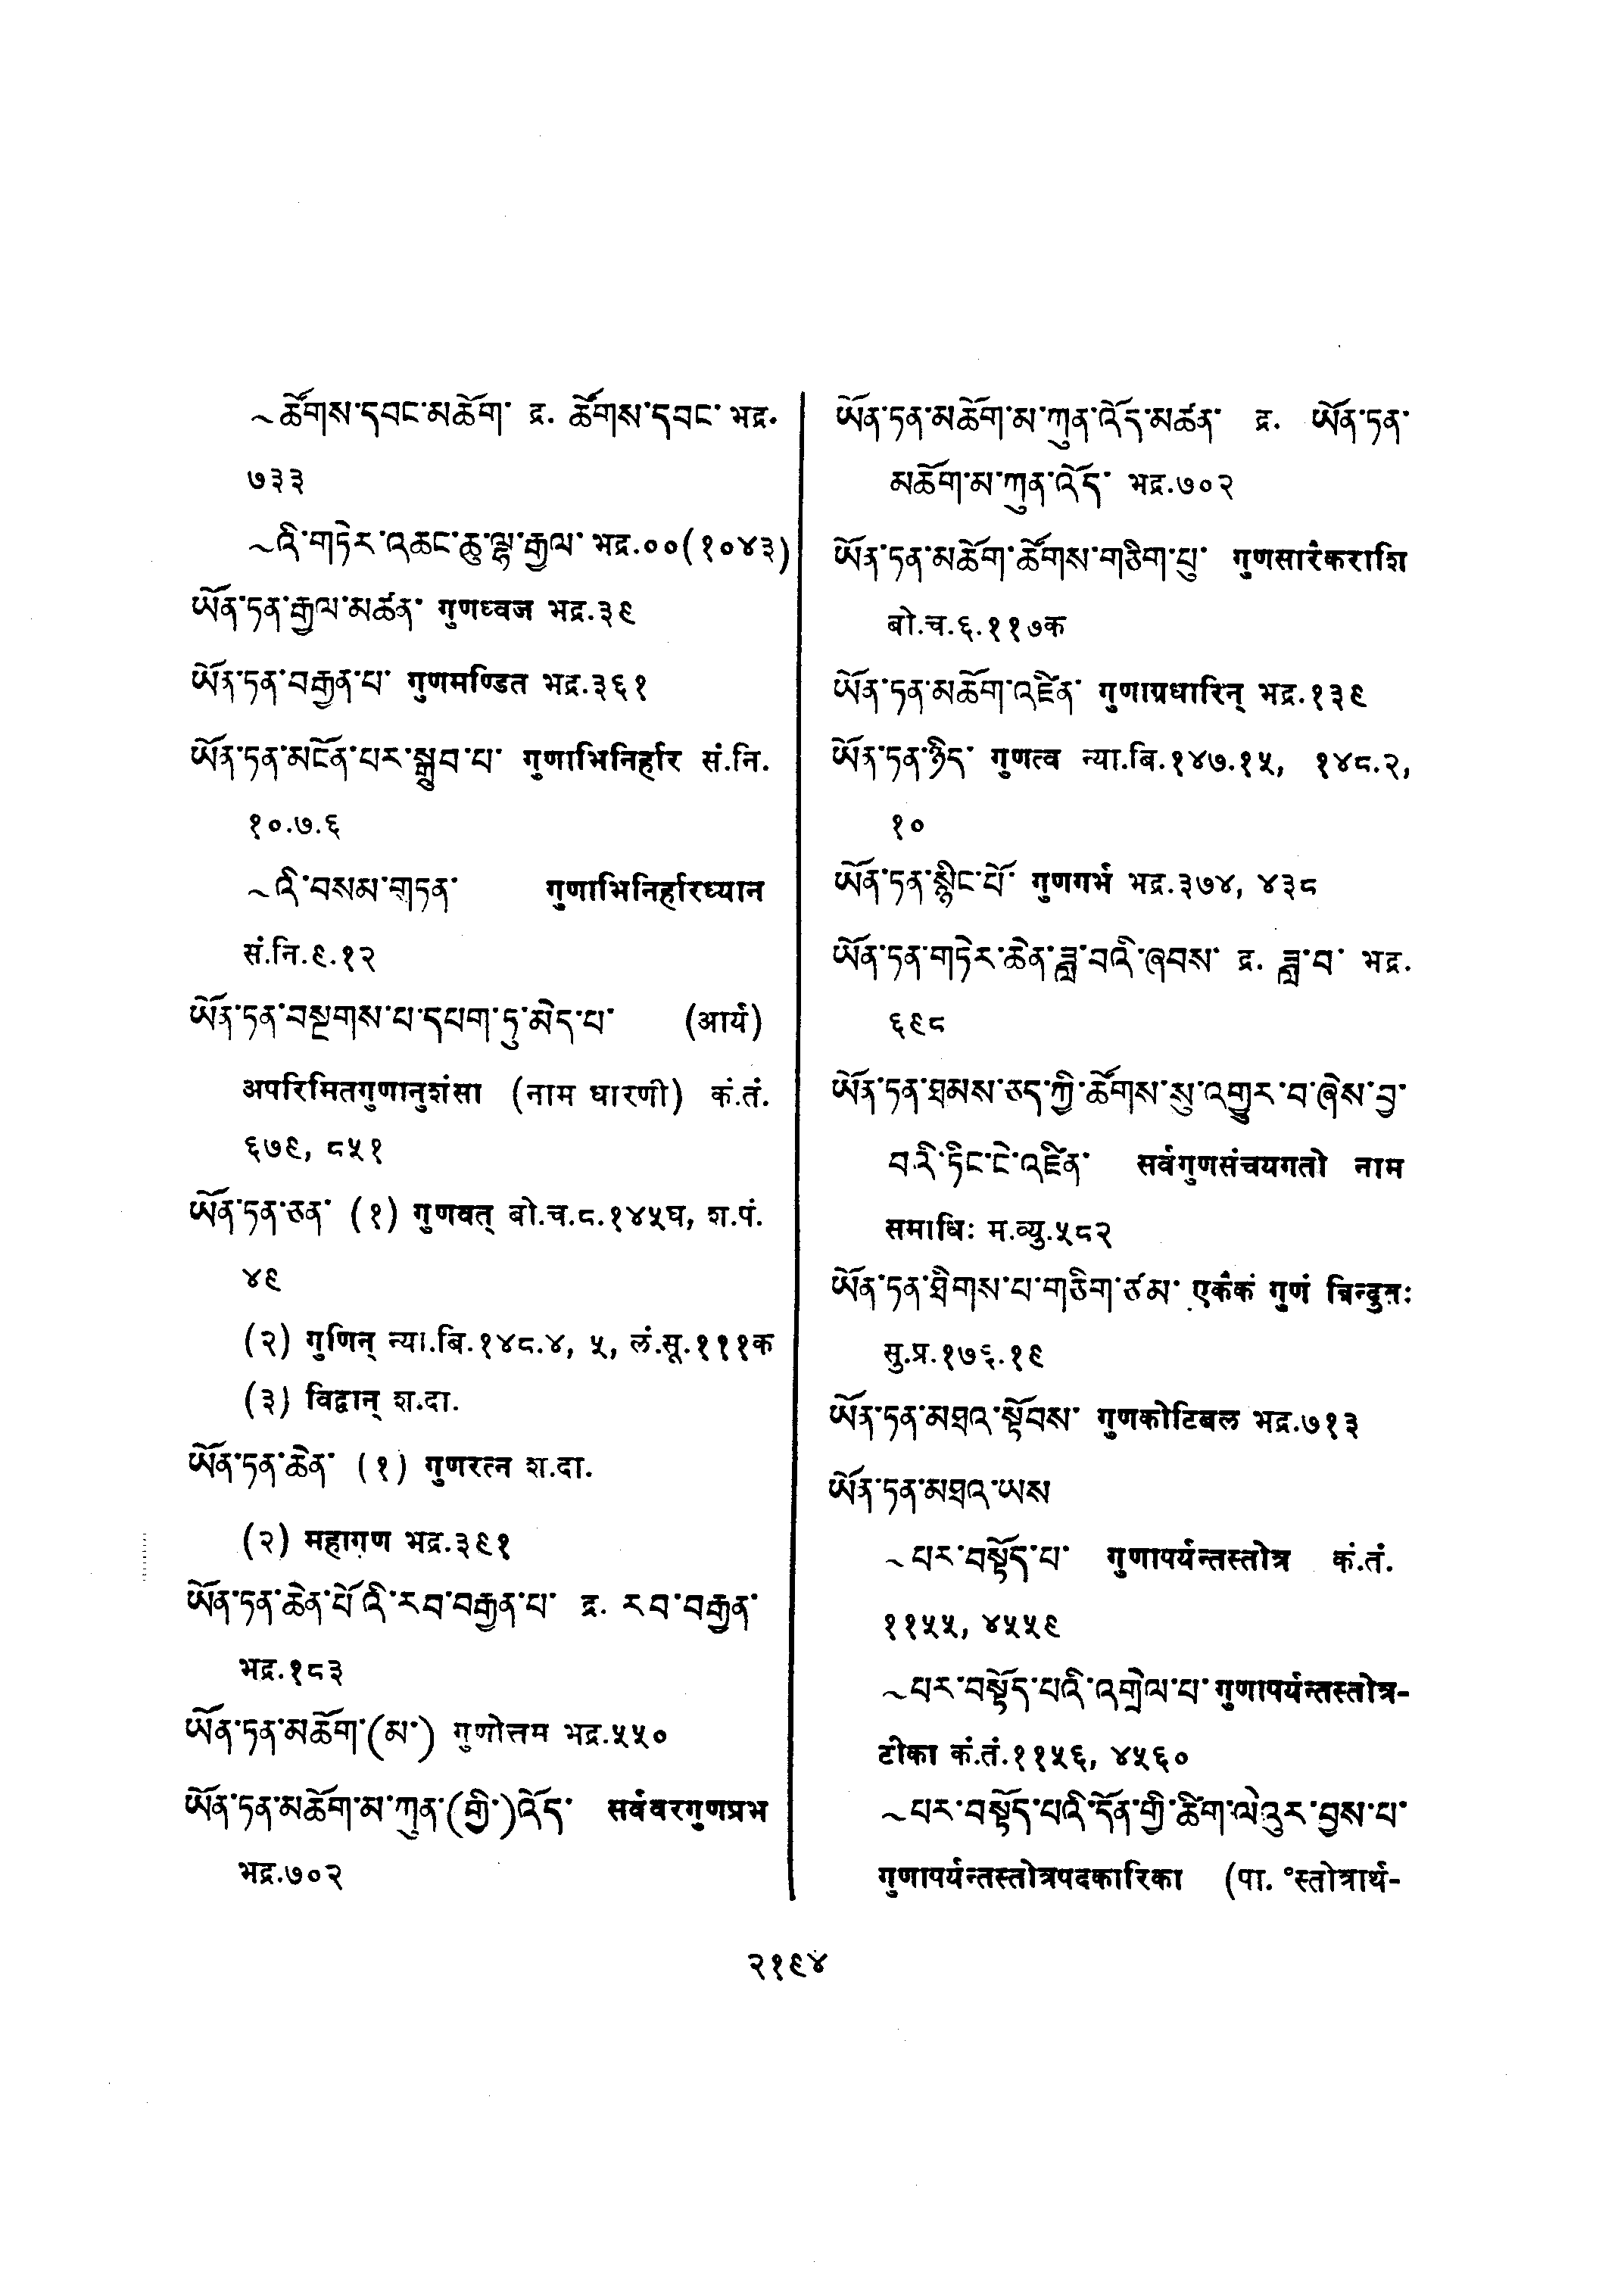 ~ཚོགས་དབང་མཆོག་ द्र. ཚོགས་དབང་ भद्र.
७३३
~འི་གཏེར་འཆང་ཆུ་ལྷ་རྒྱལ་ भद्र.००(१०४३)
ཡོན་ཏན་རྒྱལ་མཚན་ गुणध्वज भद्र.३९
ཡོན་ཏན་བརྒྱན་པ་ गुणमण्डित भद्र.३६१
ཡོན་ཏན་མངོན་པར་སྒྲུབ་པ་ गुणाभिनिर्हार सं.नि.
१०.७.६
~འི་བསམ་གཏན་ गुणाभिनिर्हारध्यान
सं.नि.९.१२
ཡོན་ཏན་བསྔགས་པ་དཔག་ཏུ་མེད་པ་ (आर्य)
अपरिमितगुणानुशंसा (नाम धारणी) कं.तं.
६७९, ८५१
ཡོན་ཏན་ཅན་ (१) गुणवत् बो.च.८.१४५घ, श.पं.
४९
(२) गुणिन् न्या.बि.१४८.४, ५, लं.सू.१११क
(३) विद्वान् श.दा.
ཡོན་ཏན་ཆེན་ (१) गुणरत्न श.दा.
(२) महागण भद्र.३९१
ཡོན་ཏན་ཆེན་པོའི་རབ་བརྒྱན་པ་ द्र. རབ་བརྒྱན་
भद्र.१८३
ཡོན་ཏན་མཆོག་(མ་) गुणोत्तम भद्र.५५०
ཡོན་ཏན་མཆོག་མ་ཀུན་(གྱི་)འོད་ सर्ववरगुणप्रभ
भद्र.७०२
ཡོན་ཏན་མཆོག་མ་ཀུན་འོད་མཚན་ द्र. ཡོན་ཏན་
མཆོག་མ་ཀུན་འོད་ भद्र.७०२
ཡོན་ཏན་མཆོག་ཚོགས་གཅིག་པུ་ गुणसारैकराशि
बो.च.६.११७क
ཡོན་ཏན་མཆོག་འཛིན་ गुणाग्रधारिन् भद्र.१३९
ཡོན་ཏན་ཉིད་ गुणत्व न्या.बि.१४७.१५, १४८.२,
१०
ཡོན་ཏན་སྙིང་པོ་ गुणगर्भ भद्र.३७४, ४३८
ཡོན་ཏན་གཏེར་ཆེན་ཟླ་བའི་ཞབས་ द्र. ཟླ་བ་ भद्र.
६९८
ཡོན་ཏན་ཐམས་ཅད་ཀྱི་ཚོགས་སུ་འགྱུར་བ་ཞེས་བྱ་
བའི་ཏིང་ངེ་འཛིན་ सर्वगुणसंचयगतो नाम
समाधिः म.व्यु.५८२
ཡོན་ཏན་ཐིགས་པ་གཅིག་ཙམ་ एकैकं गुणं बिन्दुतः
सु.प्र.१७६.१९
ཡོན་ཏན་མཐའ་སྟོབས་ गुणकोटिबल भद्र.७१३
ཡོན་ཏན་མཐའ་ཡས
~པར་བསྟོད་པ་ गुणापर्यन्तस्तोत्र कं.तं.
११५५, ४५५९
~པར་བསྟོད་པའི་འགྲེལ་པ་ गुणापर्यन्तस्तोत्र-
टीका कं.तं.११५६, ४५६०
~པར་བསྟོད་པའི་དོན་གྱི་ཚིག་ལེའུར་བྱས་པ་
गुणापर्यन्तस्तोत्रपदकारिका (पा. °स्तोत्रार्थ-
२१९४